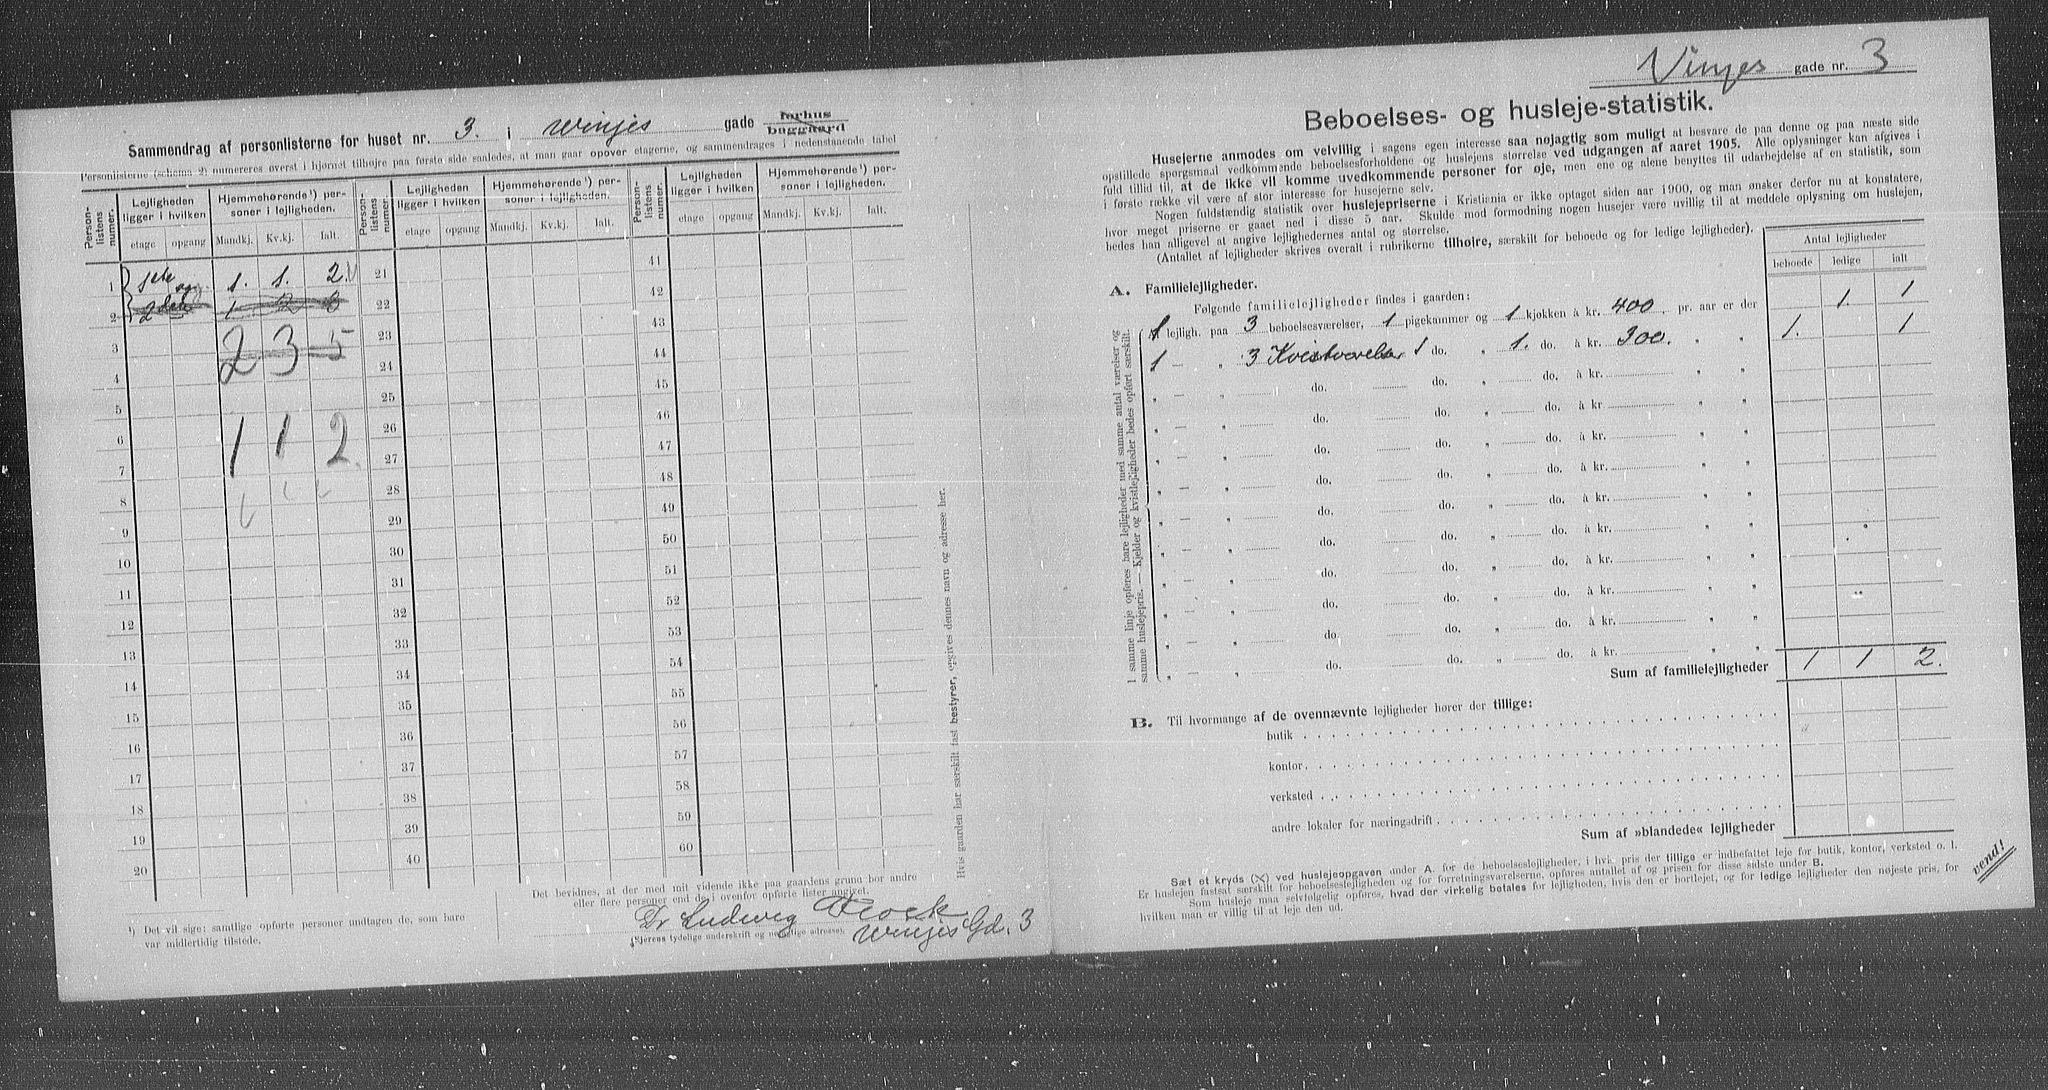 Sammendrag af personlisterne for huset nr. 3. i Winjes gade forhus baggaard
Personlisterne (schema 2) numereres øverst i hjørnet tilhøjre paa første side saaledes, at man gaar opover etagerne, og sammendrages i nedenstaaende tabel
Person-listens numer. Lejligheden ligger i hvilken Hjemmehørende¹) personer i lejligheden. Person-listens numer. Lejligheden ligger i hvilken Hjemmehørende¹) personer i lejligheden. Person-listens numer. Lejligheden ligger i hvilken Hjemmehørende¹) personer i lejligheden.
etage opgang Mandkj. Kv.kj. Ialt. etage opgang Mandkj. Kv.kj. Ialt. etage opgang Mandkj. Kv.kj. Ialt.
1 1ste og 1. 1. 2. 21 41
2 2den 1 2 3 22 42
3 2 3 5 23 43
4 24 44
5 25 45
6 1 1 2 26 46
7 27 47
8 28 48
9 29 49
10 30 50
11 31 51
12 32 52
13 33 53
14 34 54
15 35 55
16 36 56
17 37 57
18 38 58
19 39 59
20 40 60
¹) Det vil sige: samtlige opførte personer undtagen de, som bare
var midlertidig tilstede.
Det bevidnes, at der med mit vidende ikke paa gaardens grund bor andre
eller flere personer end de i ovenfor opførte lister angivet.
Dr Ludwig
(Ejerens tydelige underskrift og nøjagtige adresse).
Winjes Gd. 3
Hvis gaarden har særskilt fast bestyrer, opgives dennes navn og adresse her.
Vinjes gade nr. 3
Beboelses- og husleje-statistik.
Husejerne anmodes om velvillig i sagens egen interesse saa nøjagtig som muligt at besvare de paa denne og paa næste side
opstillede spørgsmaal vedkommende beboelsesforholdene og huslejens størrelse ved udgangen af aaret 1905. Alle oplysninger kan afgives i
fuld tillid til, at de ikke vil komme uvedkommende personer for øje, men ene og alene benyttes til udarbejdelse af en statistik, som
i første række vil være af stor interesse for husejerne selv.
Nogen fuldstændig statistik over huslejepriserne i Kristiania er ikke optaget siden aar 1900, og man ønsker derfor nu at konstatere,
hvor meget priserne er gaaet ned i disse 5 aar. Skulde mod formodning nogen husejer være uvillig til at meddele oplysning om huslejen,
bedes han alligevel at angive lejlighedernes antal og størrelse.
(Antallet af lejligheder skrives overalt i rubrikerne tilhøjre, særskilt for beboede og for ledige lejligheder).
Antal lejligheder
beboede ledige ialt
A. Familielejligheder.
Følgende familielejligheder findes i gaarden:
1 lejligh. paa 3 beboelsesværelser, 1 pigekammer og 1 kjøkken à kr. 400 pr. aar er der 1. 1
1 — „ 3 Kvistværelser 1 do. „ 1. do. à kr. 300. „ „ 1. 1
„ — „ do. do. „ do. à kr. „ „
„ — „ do. do. „ do. à kr „ „
„ — „ do. do. „ do. à kr. „ „
„ — „ do. do. „ do. à kr. „ „
„ — „ do. do. „ do. à kr. „ „
„ — „ do. do. „ do. à kr. „ „
„ — „ do. do. „ do. à kr. „ „
„ — „ do. do. „ do. à kr. „ „
„ — „ do. do. „ do. à kr. „ „
„ — „ do. do. „ do. à kr. „ „
I samme linje opføres bare lejligheder med samme antal værelser og
samme huslejepris. — Kjelder og kvistlejligheder bedes opført særskilt.
Sum af familielejligheder 1 1 2.
B. Til hvormange af de ovennævnte lejligheder hører der tillige:
butik
kontor
verksted
andre lokaler for næringsdrift
Sum af »blandede« lejligheder
Sæt et kryds (X) ved huslejeopgaven under A. for de beboelseslejligheder, i hvis pris der tillige er indbefattet leje for butik, kontor, verksted o. l.
Er huslejen fastsat særskilt for beboelseslejligheder og for forretningsværelserne, opføres antallet af og prisen for disse sidste under B.
Som husleje maa selvfølgelig opføres, hvad der virkelig betales for lejligheden, hvis den er bortlejet, og for ledige lejligheder den nøjeste pris, for
hvilken man er villig til at leje den ud.
vend!